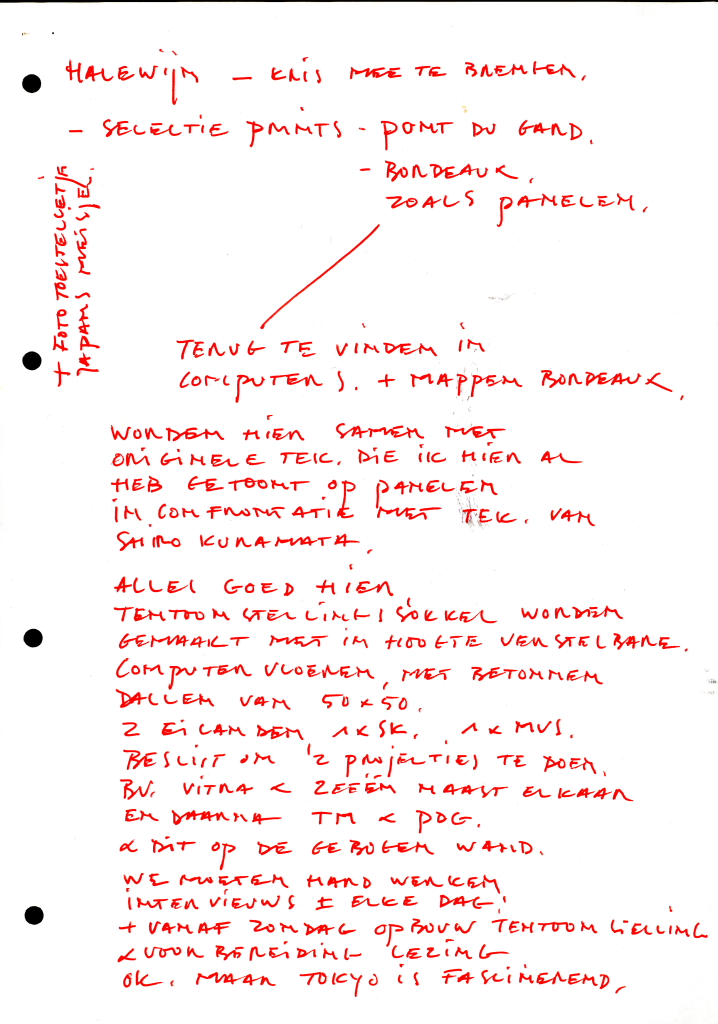 HALEWIJN – KRIS MEE TE BRENGEN.
– SELECTIE PRINTS – PONT DU GARD.
– BORDEAUX.
ZOALS PANELEN.
+ FOTOTOESTELLETJE
JAPANS MEISJE.
TERUG TE VINDEN IN
COMPUTER S. + MAPPEN BORDEAUX.
WORDEN HIER SAMEN MET
ORIGINELE TEK. DIE IK HIER AL
HEB GETOONT OP PANELEN
IN CONFRONTATIE MET TEK. VAN
SHIRO KURAMATA.
ALLES GOED HIER,
TENTOONSTELLINGSSOKKEL WORDEN
GEMAAKT MET IN HOOGTE VERSTELBARE.
COMPUTER VLOEREN, MET BETONNEN
DALLEN VAN 50x50.
2 EILANDEN 1xSK. 1xMVS.
BESLIST OM '2 PROJECTIES TE DOEN.
BV. VITRA & ZEEËN NAAST ELKAAR
EN DAARNA TM & PDG.
& DIT OP DE GEBOGEN WAND.
WE MOETEN HARD WERKEN
INTERVIEUWS ± ELKE DAG!
+ VANAF ZONDAG OPBOUW TENTOONSTELLING
& VOORBEREIDING LEZING
OK. MAAR TOKYO IS FASCINEREND,